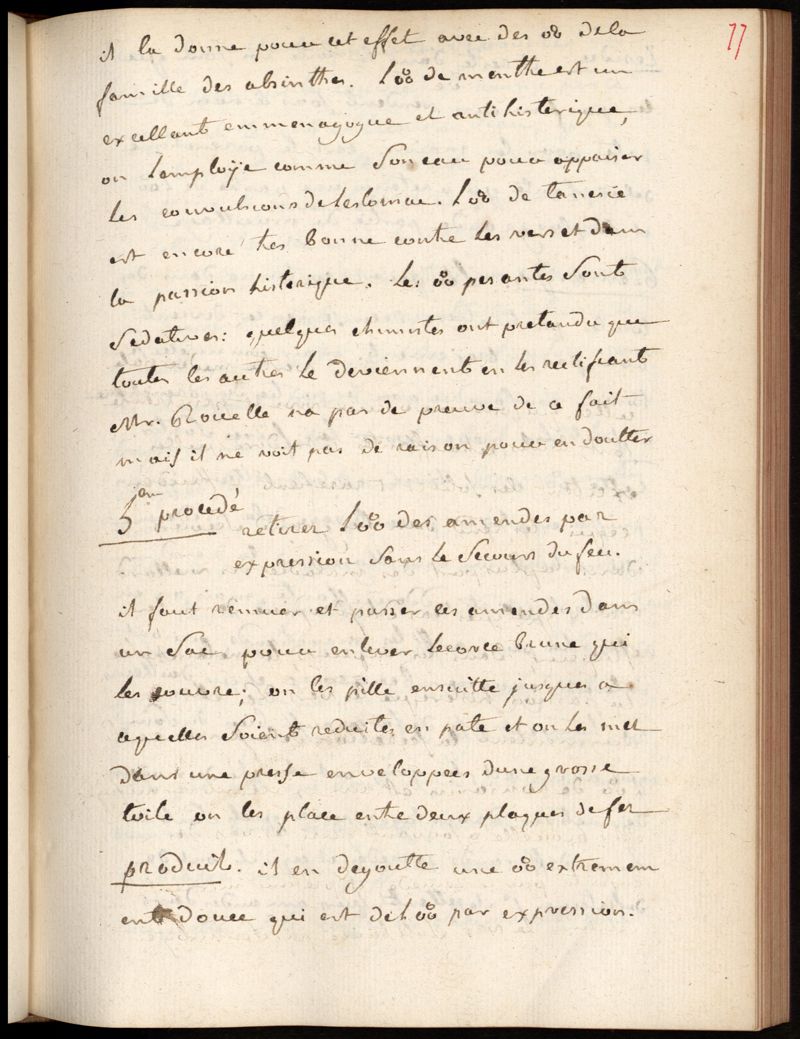 77
il la donne pour cet effet avec des o8 de la
famille des absinthes. Lo8 de menthe est un
excellant emmenagogue et antihisterique,
on Lemploÿe comme Son eau pour appaiser
Les convulsions de Lestomac. Lo8 de tanesie
est encore tres bonne contre Les vers et dans
la passion histerique. Les o8 pesantes Sont
Sedatives: quelques chimistes ont pretandu que
toutes les autres Le deviennent en les rectifiant
Mr. Rouelle na pas de preuve de ce fait
mais il ne voit pas de raison pour en doutter
5em procedé
retirer Lo8 des amendes par
expression Sans le Secours du feu.
il faut remuer et passer les amendes dans
un Sac pour enlever Lecorce brune qui
les couvre; on les pille ensuitte jusques a
aquelles Soient reduites en pate et on Les met
dans une presse enveloppées dune grosse
toile on les place entre deux plaques de fer
produit. il en degoutte une o8 extremem
ent douce qui est de lo8 par expression.